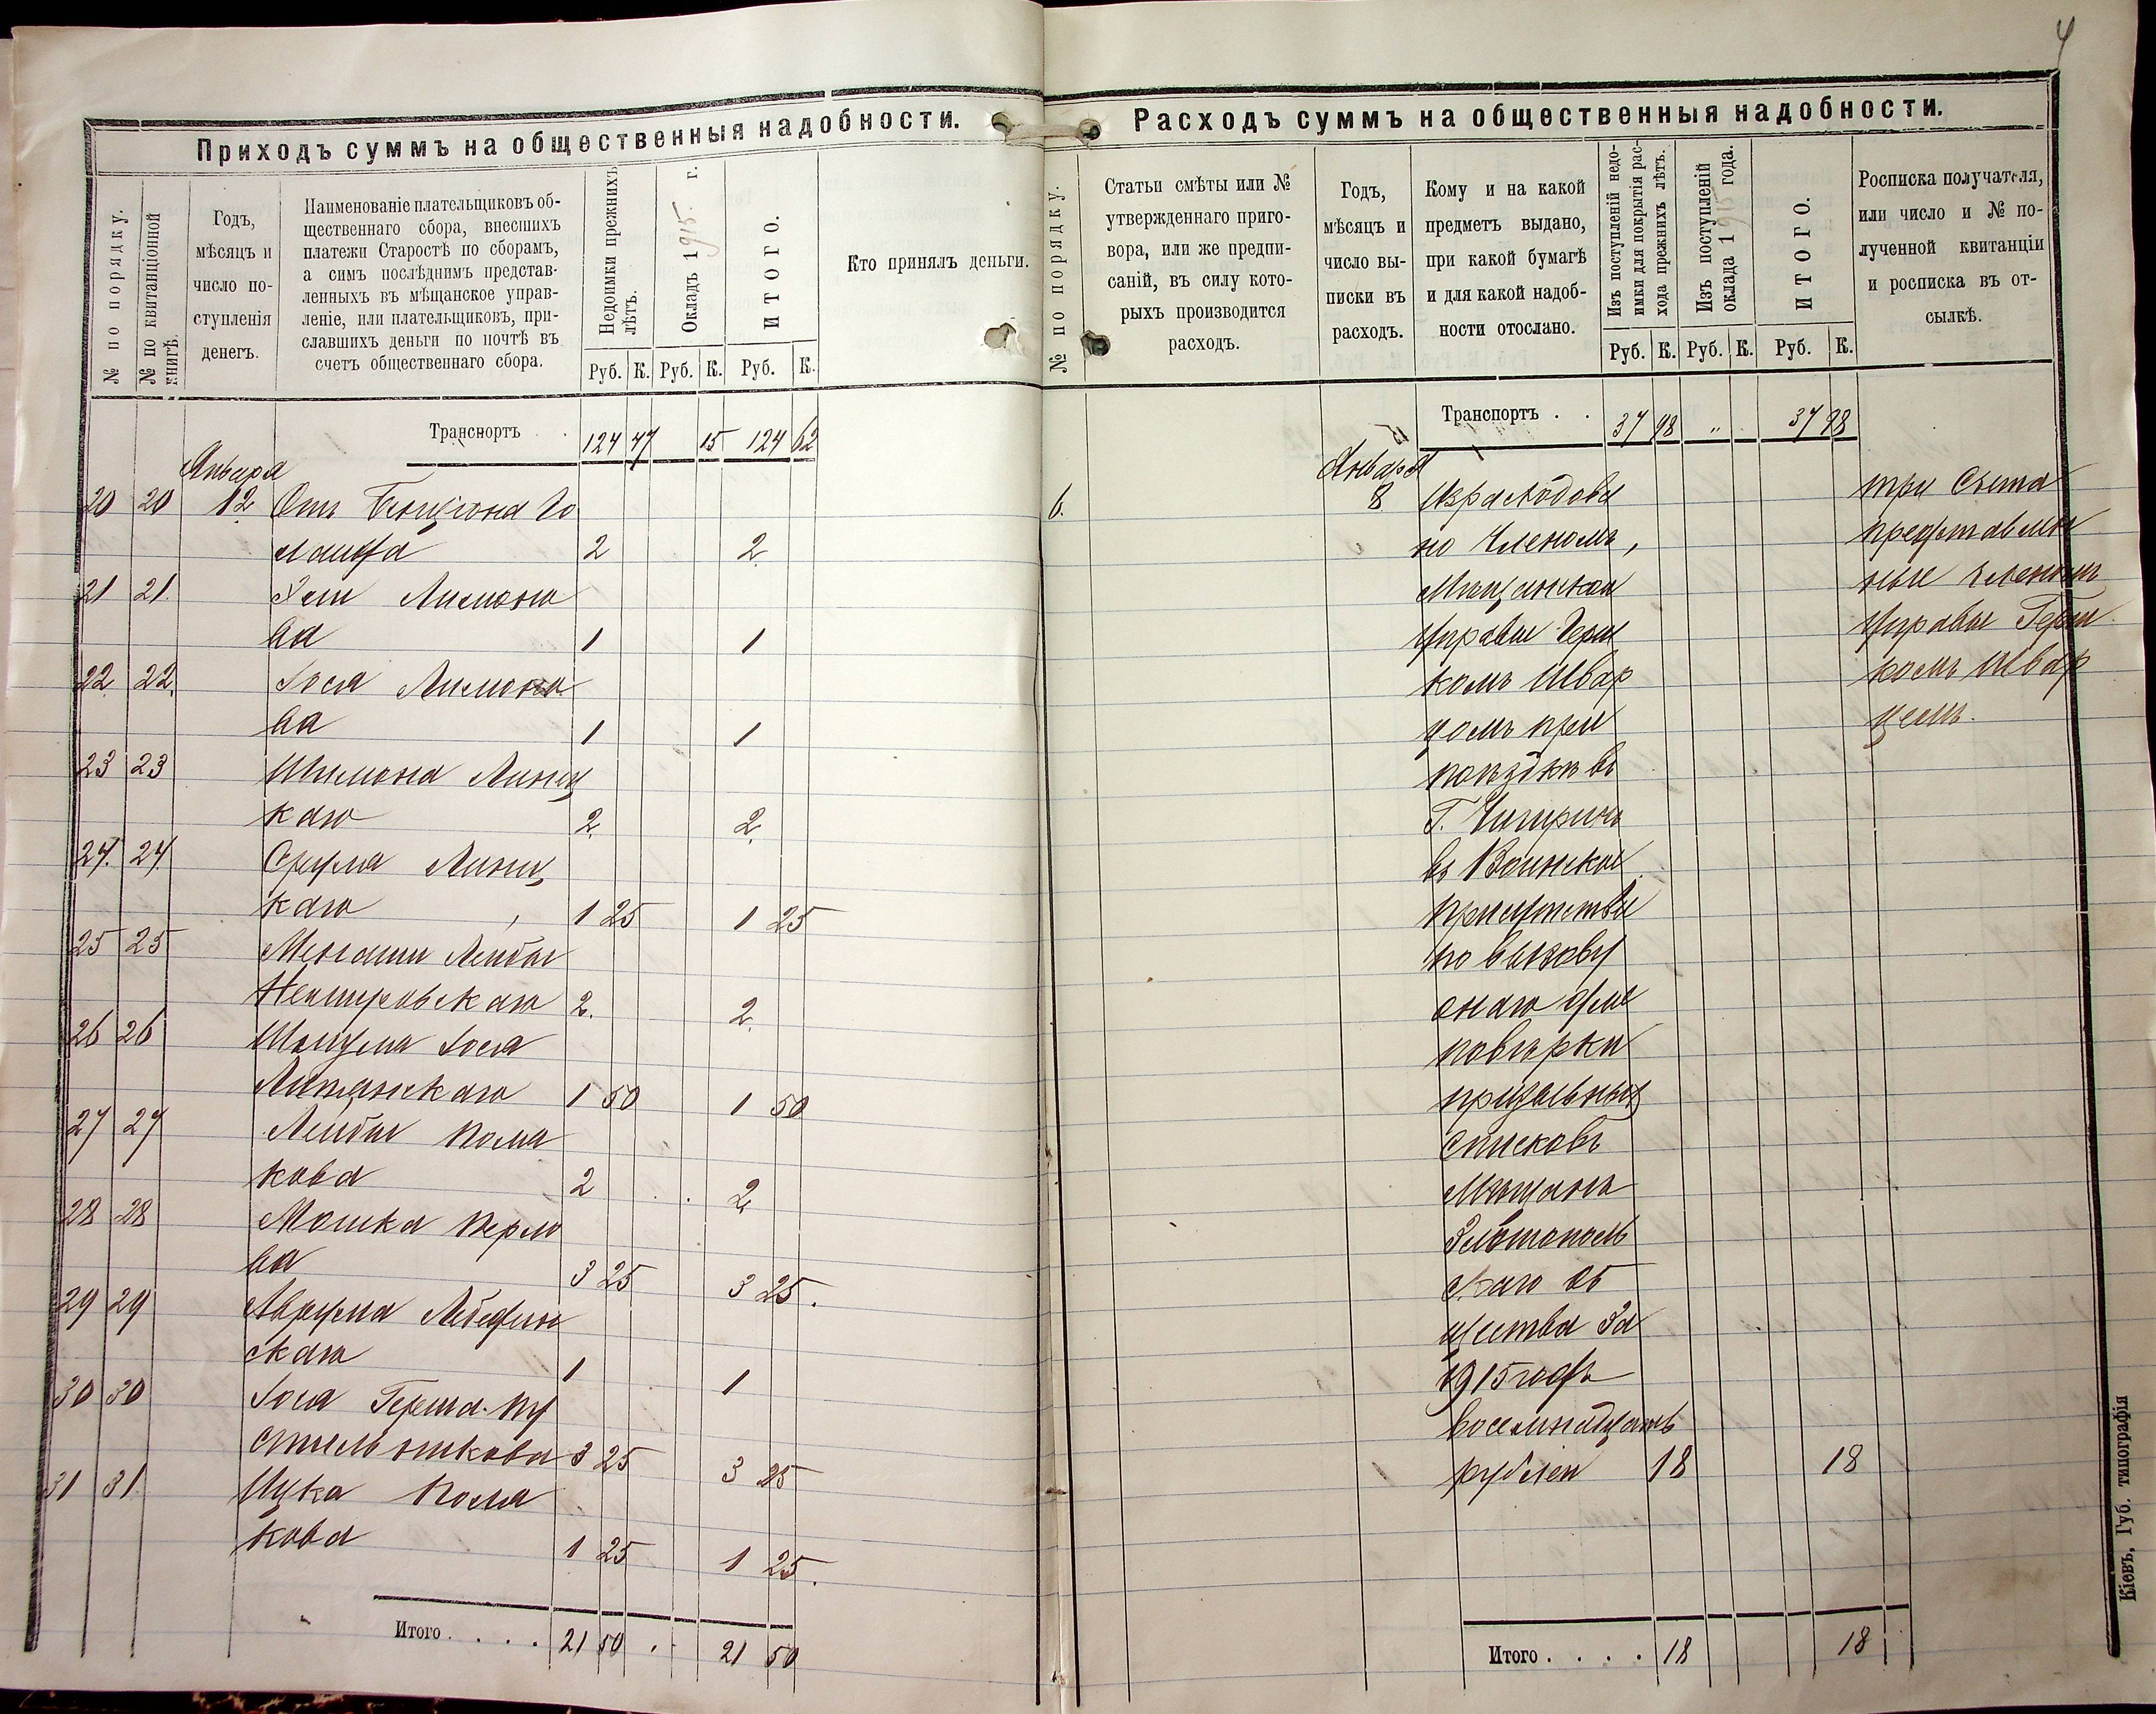 4
Приходъ суммъ на общественныя надобности.
№ по порядку.
№ по квитанціонной книгѣ.
Годъ,
мѣсяцъ и
число по-
ступленія
денегъ.
Наименованіе плательщиковъ об-
щественнаго сбора, внесшихъ
платежи Старостѣ по сборамъ,
а симъ послѣднимъ представ-
ленныхъ въ мѣщанское управ-
леніе, или плательщиковъ, при-
славшихъ деньги по почтѣ въ
счетъ общественнаго сбора.
Недоимки прежнихъ
лѣтъ.
Окладъ 1915 г.
ИТОГО.
Руб. К. Руб. К. Руб. К.
Кто принялъ деньги.
Транспортъ . 124 47 15 124 62
Января
20 20 12 Отъ Бенціона Го
2 2
21 21. Лимоно
ва 1 1
22 22. Іося Лимоно
ва 1 1
23 23 Шимона Линец
каго 2 2
24. 24. Срумa Линец
каго 1 25 1 25
25 25 Менаши Лейбы
Немировскаго 2. 2.
26 26 Іося
Литинскаго 1 50 1 50
27 27 Лейбы Поля
кова 2 2
28 28 Мошка Перло
ва 3 25 3 25.
29 29 Аврума Лебедин
скаго 1 1
30 30 Іося Герша Пу
3 25 3 25
31 31. Ицка Поля
кова 1 25 1 25.
Итого . . . . 21 50 . - 21 50
Расходъ суммъ на общественныя надобности.
№ по порядку.
Статьи смѣты или №
утвержденнаго приго-
вора, или же предпи-
саній, въ силу кото-
рыхъ производится
расходъ.
Годъ,
мѣсяцъ и
число вы-
писки въ
расходъ.
Кому и на какой
предметъ выдано,
при какой бумагѣ
и для какой надоб-
ности отослано.
Изъ поступленій недо-
имки для покрытія рас-
хода прежнихъ лѣтъ.
Изъ поступленій
оклада 1915 года.
ИТОГО.
Руб. К. Руб. К. Руб. К.
Росписка получателя,
или число и № по-
лученной квитанціи
и росписка въ от-
сылкѣ.
Транспортъ . . 37 98 „ 37 98
Января
6. 8 Израсходова
но Членомъ,
Мѣщанской
Управы Герш
комъ Швар
цомъ при
поѣздкѣ въ
Г. Чигиринъ
въ Воинское
присутствіе
по вызову
онаго для
повѣрки
призывныхъ
списковъ
Мѣщанъ
Златополь
скаго об
щества за
1915 годъ
восемнадцать
рублей 18 18
Итого . . . . 18 18
три Счета
представлен
ные Членомъ
Управы Герш
комъ Швар
цемъ.
Кіевъ, Губ. типографія